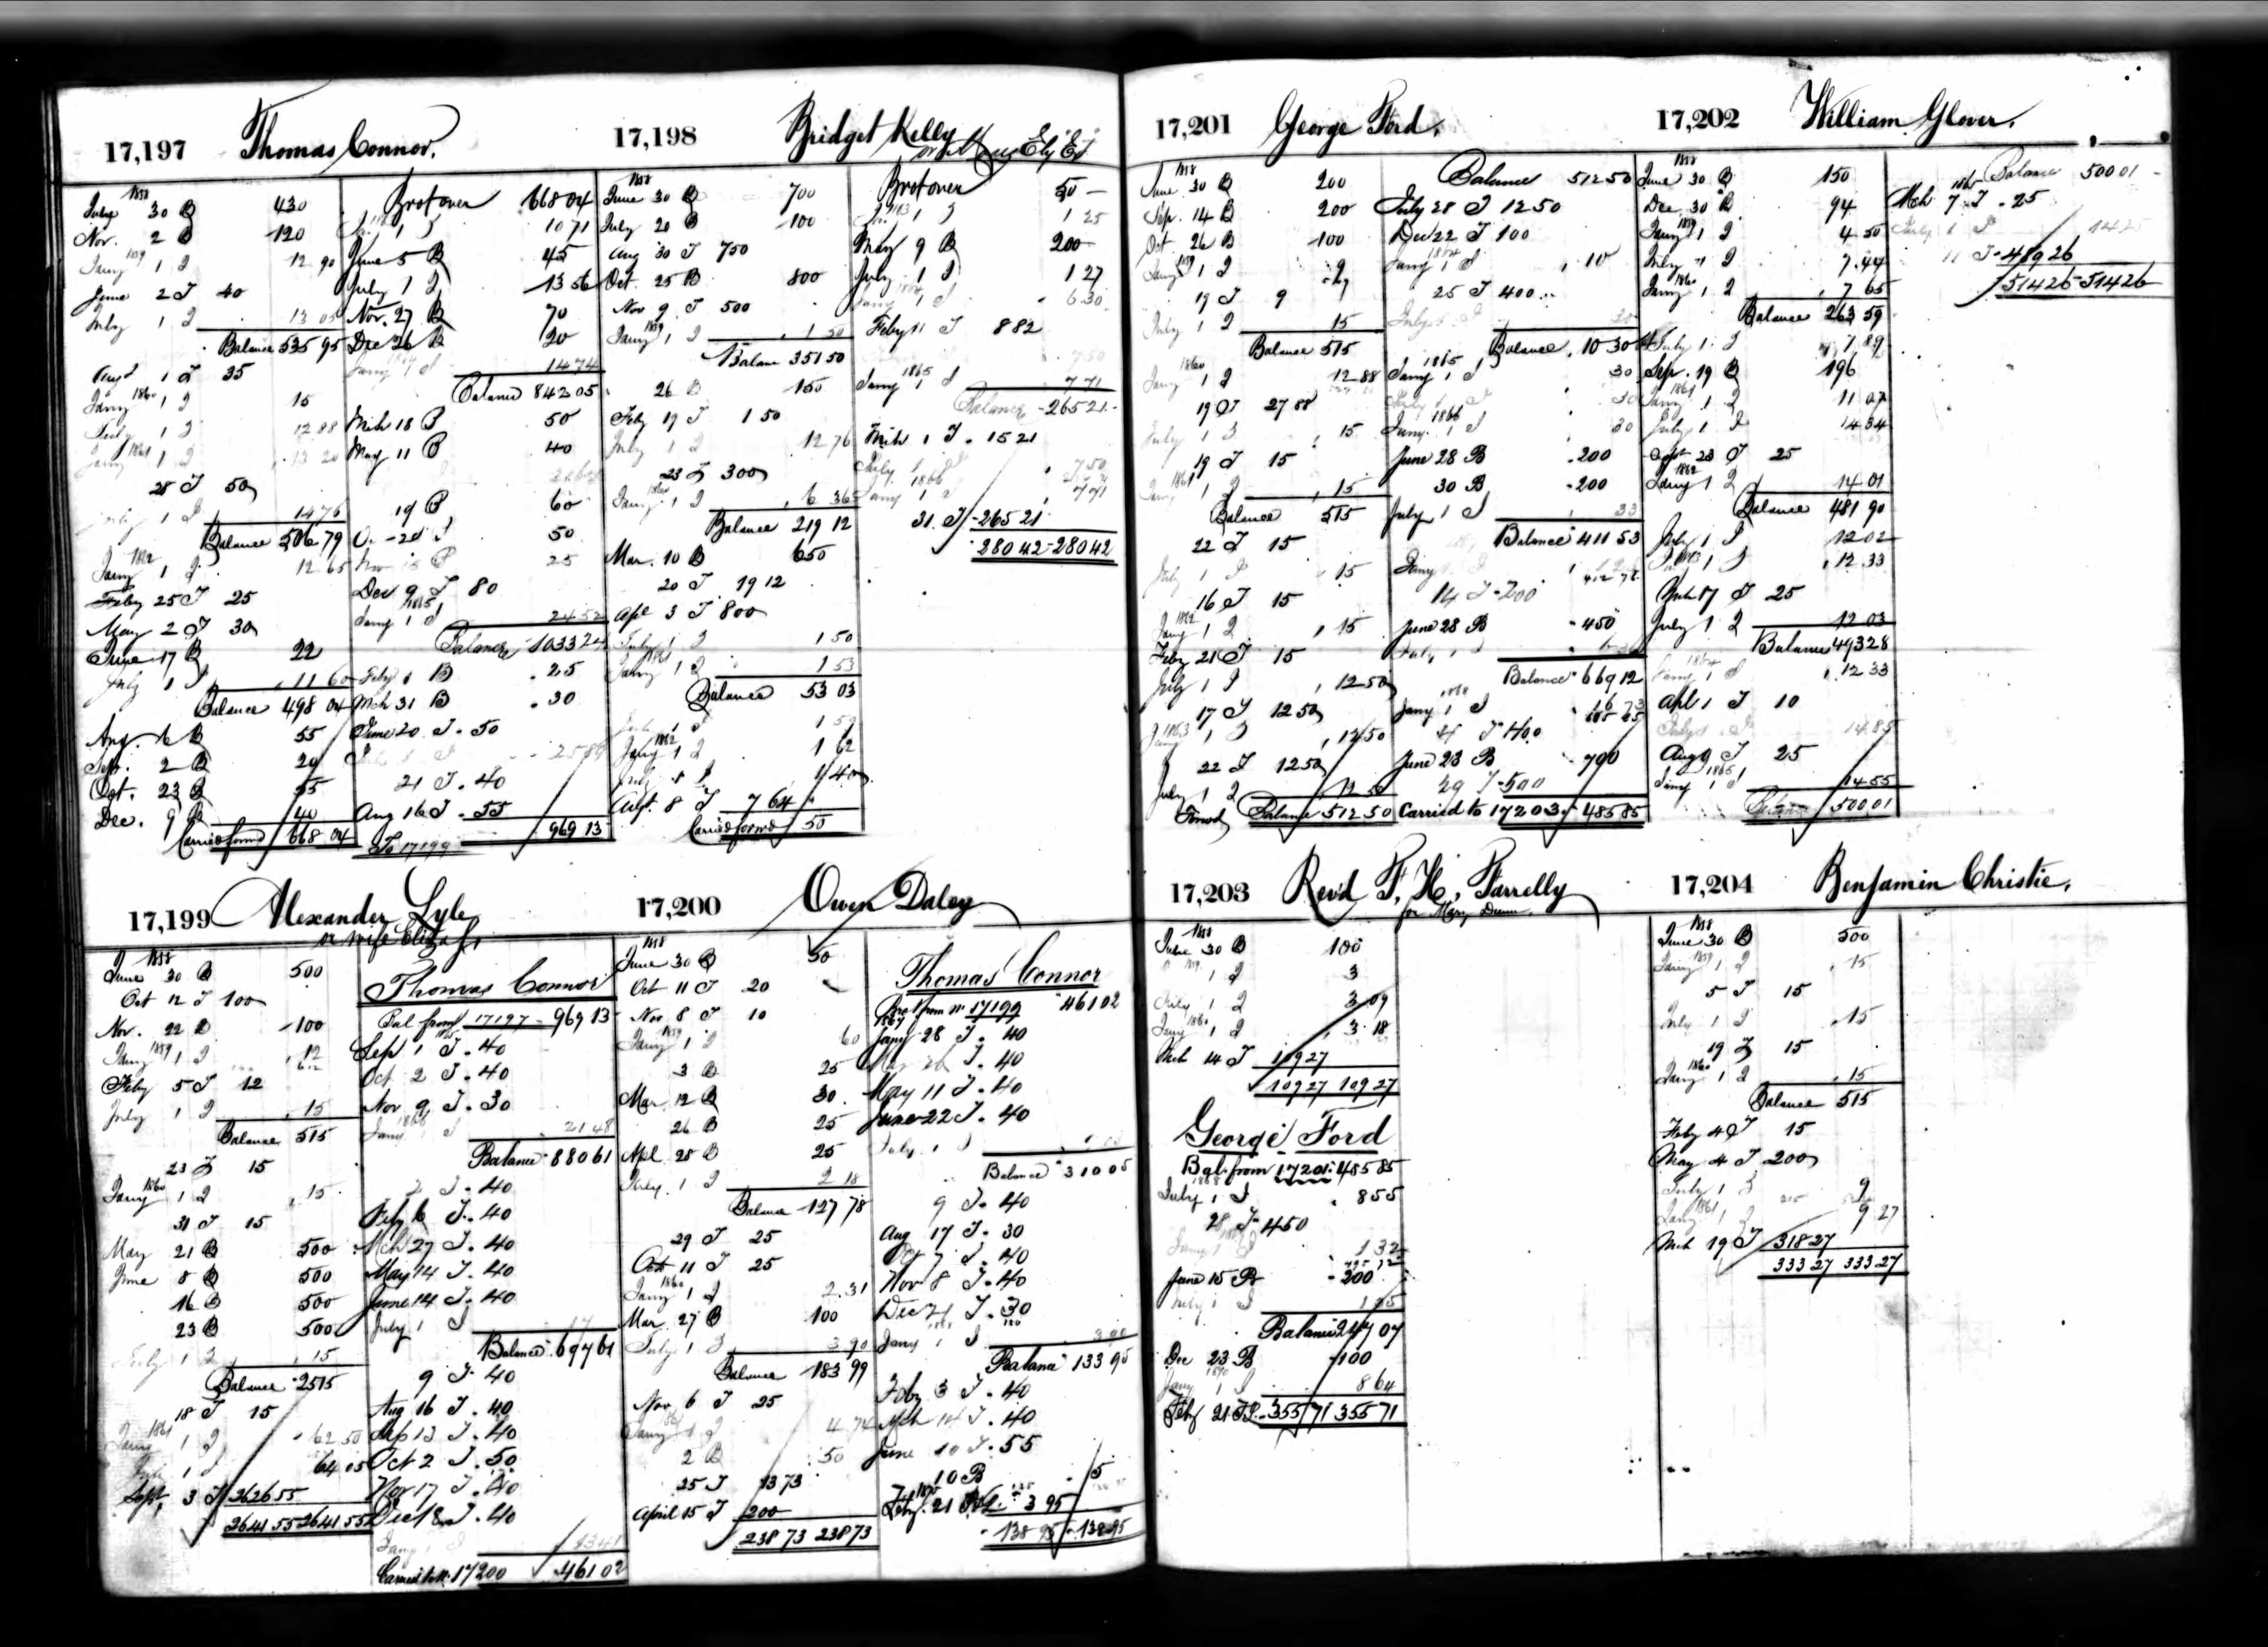 17,197 Thomas Connor.
1858
July 30 B 430
Nov. 2 B 120
Jany 1859 1 I 12 90
June 2 T 40
July 1 I 13 05
Balance 535 95
Augt 1 T 35
Jany 1860 1 I 15
July 1 I 12 88
Jany 1861 1 I 13 20
28 T 50
July 1 I 14 76
Balance 506 79
Jany 1862 1 I 12 65
Feby 25 T 25
May 2 T 30
June 17 B 22
July 1 I 11 60
Balance 498 04
Aug. 6 B 55
Sep. 2 B 20
Oct. 23 B 55
Dec. 9 B 40
Carried forwd 668 04
Brot over 668 04
1 I 10 71
June 5 B 45
July 1 I 13 56
Nov. 27 B 70
Dec 26 B 20
Jany 1864 I 14 74
Balance 842 05
Mch 18 B 50
May 11 B 40
19 B 60
50
25
Dec 9 T 80
Jany 1865 1 I 24 52
Balance 1033 24
Feby 1 B 25
Mch 31 B 30
June 20 T 50
I 25 89
21 T 40
Aug 16 T 55
To 17199 969 13
17,198 Bridget Kelly
1858
June 30 B 700
July 20 B 100
Aug 30 T 750
Oct. 25 B 800
Nov 9 T 500
Jany 1859 1 I 1 50
Balance 351 50
26 B 150
Feby 19 T 1 50
July 1 I 12 76
23 T 300
Jany 1860 1 I 6 36
Balance 219 12
Mar. 10 B 650
20 T 19 12
Apl 3 T 800
July 1 I 1 50
Jany 1861 1 I 1 53
Balance 53 03
July 1 I 1 59
Jany 1862 1 I 1 62
July 1 I 1 40
Augt. 8 T 7 64
Carried forwd 50
Brot over 50
1863 1 I 1 25
May 9 B 200
July 1 I 1 27
Jany 1864 1 I 6 30
Feby 11 T 8 82
7 50
Jany 1865 1 I 7 71
Balance 265 21
Mch 1 T 15 21
July 1 I 7 50
Jany 1866 1 I 7 71
31 T 265 21
280 42 280 42
17,199 Alexander Lyle
or wife Eliza
1858
June 30 B 500
Oct 12 T 100
Nov. 22 B 100
Jany 1859 1 I 12
Feby 5 T 12
July 1 I 15
Balance 515
23 T 15
Jany 1860 1 I 15
31 T 15
May 21 B 500
June 8 B 500
16 B 500
23 B 500
July 1 I 15
Balance 2515
18 T 15
Jany 1861 1 I 62 50
July 1 I 64 05
Sept, 3 T 2626 55
2641 55 2641 55
Thomas Connor
Bal from 17197 969 13
Sep 1 T 40
Oct 2 T 40
Nov 9 T 30
Jany 1866 I 21 48
Balance 880 61
2 T 40
Feby 6 T 40
Mch 27 T 40
May 14 T 40
June 14 T 40
July 1 I 17
Balance 697 61
9 T 40
Aug 16 T 40
Sep 13 T 40
Oct 2 T 50
Nov 17 T 40
Dec 18 T 40
Jany I 13 41
Carried to No. 17200 461 02
17,200 Owen Daley
1858
June 30 B 50
Oct 11 T 20
Nov 8 T 10
Jany 1859 1 I 60
3 B 25
Mar. 12 B 30
26 B 25
Apl. 28 B 25
July. 1 I 2 18
Balance 127 78
29 T 25
Oct 11 T 25
Jany 1860 1 I 2.31
Mar. 27 B 100
July 1 I 3 90
Balance 183 99
Nov 6 T 25
Jany 1861 1 I 4 74
2 B 50
25 T 13 73
April 15 T 200
238 73 238 73
Thomas Connor
Brot from No. 17199 461 02
1867
Jany 28 T 40
26 T 40
May 11 T 40
June 22 T 40
July 1 I
Balance 310 05
9 T 40
Aug 17 T 30
Oct 7 T 40
Nov 8 T 40
Dec 21 T 30
Jany 1868 1 I 3 90
Balance 133 95
Feby 3 T 40
Mch 14 T 40
June 10 T 55
10 B 5
1870
Feby. 21 3 95
138 95 138 95
17,201 George Ford.
1858
June 30 B 200
Sep. 14 B 200
Oct 26 B 100
Jany 1859 1 I 9
19 T 9
July 1 I 15
Balance 515
Jany 1860 1 I 12 88
19 T 27 88
July 1 I 15
19 T 15
Jany 1861 1 I 15
Balance 515
22 T 15
July 1 I 15
16 T 15
Jany 1862 1 I 15
Feby 21 T 15
July 1 I 12 50
17 T 12 50
Jany 1863 1 I 12 50
22 T 12 50
July 1 I 12 50
Forwd Balance 512 50
Balance 512 50
July 28 T 12 50
Dec 22 T 100
Jany 1864 1 I 10
25 T 400
July 1 I 20
Balance 10 30
Jany 1865 1 I 30
July 1 I 30
Jany. 1866 1 I 30
June 28 B 200
30 B 200
July 1 I 33
Balance 411 53
Jany
14 T 200
June 28 B 450
July 1 I
Balance 669 12
Jany 1868 1 I 16 73
4 T 400
June 23 B 700
29 T 500
Carried to 17203 485 85
17,202 William Glover.
1858
June 30 B 150
Dec 30 B 94
Jany 1859 1 I 4 50
July 1 I 7.44
Jany 1860 1 I 7 65
Balance 263 59
July 1 I 7 89
Sep. 19 B 196
Jany 1861 1 I 11 07
July 1 I 14 34
Sept 23 T 25
Jany 1862 1 I 14 01
Balance 481 90
July 1 I 12 02
1863 1 I 12 33
17 T 25
July 1 I 12 03
Balance 493 28
Jany 1864 1 I 12 33
Apl 1 T 10
July 1 I 14 85
Aug 9 T 25
Jany 1865 1 I 14 55
Balance 500 01
Balance 500 01
1865
Mch 7 T 25
July 1 I 14 25
11 T 489 26
514 26 514 26
17,203 Rev'd F. H. Farrelly
for Mary Dunn.
1858
June 30 B 100
1859 1 I 3
July 1 I 3 09
Jany 1860 1 I 3 18
Mch 14 T 109 27
109 27 109 27
George Ford
Bal. from 17201 485 85
July 1868 1 I 8 55
28 T 450
Jany 1 I 1 32
June 15 B 200
July 1 I 1 35
Balance 247 07
Dec 23 B 100
Jany 1870 1 I 8 64
Feby 21 355 71 355 71
17,204 Benjamin Christie.
1858
June 30 B 500
Jany 1859 1 I 15
5 T 15
July 1 I 15
19 T 15
Jany 1860 1 I 15
Balance 515
Feby 4 T 15
May 4 T 200
July 1 I 9
Jany 1861 1 I 9 27
Mch 19 T 318 27
333 27 333 27